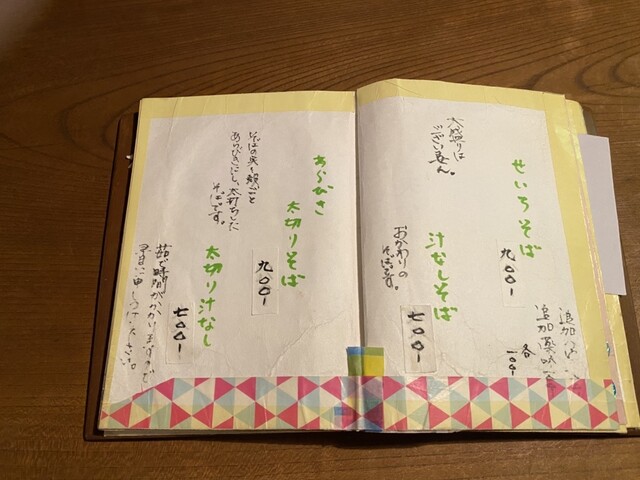 せいろそば
九〇〇-
追加つゆ
追加薬味
各
一〇〇-
汁なしそば
七〇〇-
おかわりの
そばです。
大盛りは
ございません。
あらびき
太切りそば
九〇〇-
そばの実一粒ごと
あらびきにし、太打ちした
そばです。
太切り汁なし
七〇〇-
茹で時間がかかりますので
早目に申しつけ下さい。